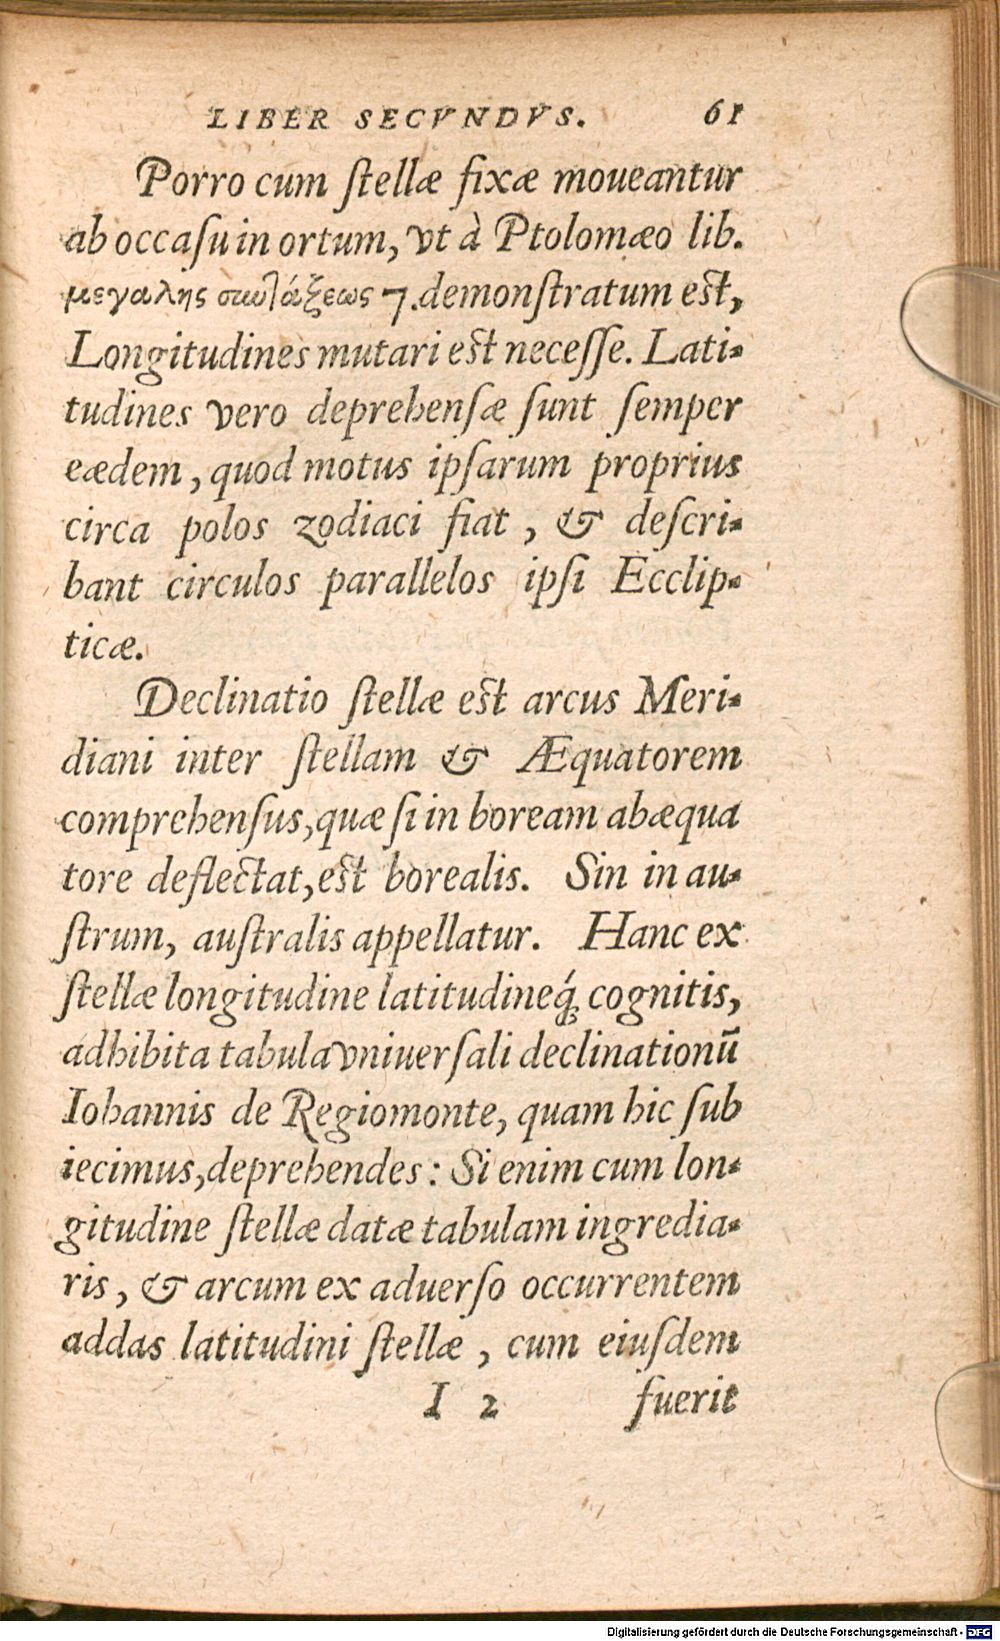 LIBER SECVNDVS. 61
Porro cum ſtellæ fixæ moueantur
ab occaſu in ortum, vt à Ptolomæo lib.
μεγαλης συντάξεως 7. demonſtratum eſt,
Longitudines mutari eſt neceſſe. Lati-
tudines vero deprehenſæ ſunt ſemper
eædem, quod motus ipſarum proprius
circa polos zodiaci fiat, & deſcri-
bant circulos parallelos ipſi Ecclip-
ticæ.
Declinatio ſtellæ eſt arcus Meri-
diani inter ſtellam & Æquatorem
comprehenſus, quæ ſi in boream ab æqua
tore deflectat, eſt borealis. Sin in au-
ſtrum, auſtralis appellatur. Hanc ex
ſtellæ longitudine latitudineq́; cognitis,
adhibita tabula vniuerſali declinationū
Iohannis de Regiomonte, quam hic ſub
iecimus, deprehendes: Si enim cum lon-
gitudine ſtellæ datæ tabulam ingredia-
ris, & arcum ex aduerſo occurrentem
addas latitudini ſtellæ, cum eiuſdem
I 2 fuerit
Digitalisierung gefördert durch die Deutsche Forschungsgemeinschaft - DFG